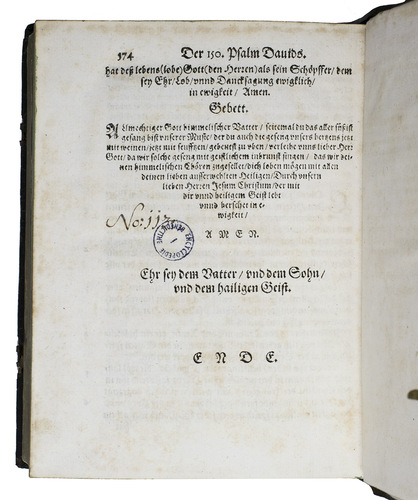 374 Der 150. Psalm Dauids.
hat deß lebens (lobe) Gott (den Herren) als sein Schöpffer / dem
sey Ehr / Lob / vnnd Dancksagung ewigklich /
in ewigkeit / Amen.
Gebett.
ALmechtiger Gott himmelischer Vatter / seitemal du das aller süssist
gesang bist vnserer Music / der du auch die geseng vnsers hertzens jetz
mit weinen / jetz mit seufftzen / gebeutst zu vben / verleihe vnns lieber Herr
Gott / da wir solche geseng mit geistlichem inbrunst singen / das wir dei-
nen himmelischen Chören zugesellet / dich loben mögen mit allen
deinen lieben ausserwehlten Heiligen / Durch vnsern
lieben Herren Jesum Christum / der mit
dir vnnd heiligem Geist lebt
vnnd herschet in e-
wigkeit /
No: 113
A M E N.
ENCYCLOPEDIE
Ehr sey dem Vatter / vnd dem Sohn /
vnd dem hailigen Geist.
E N D E.